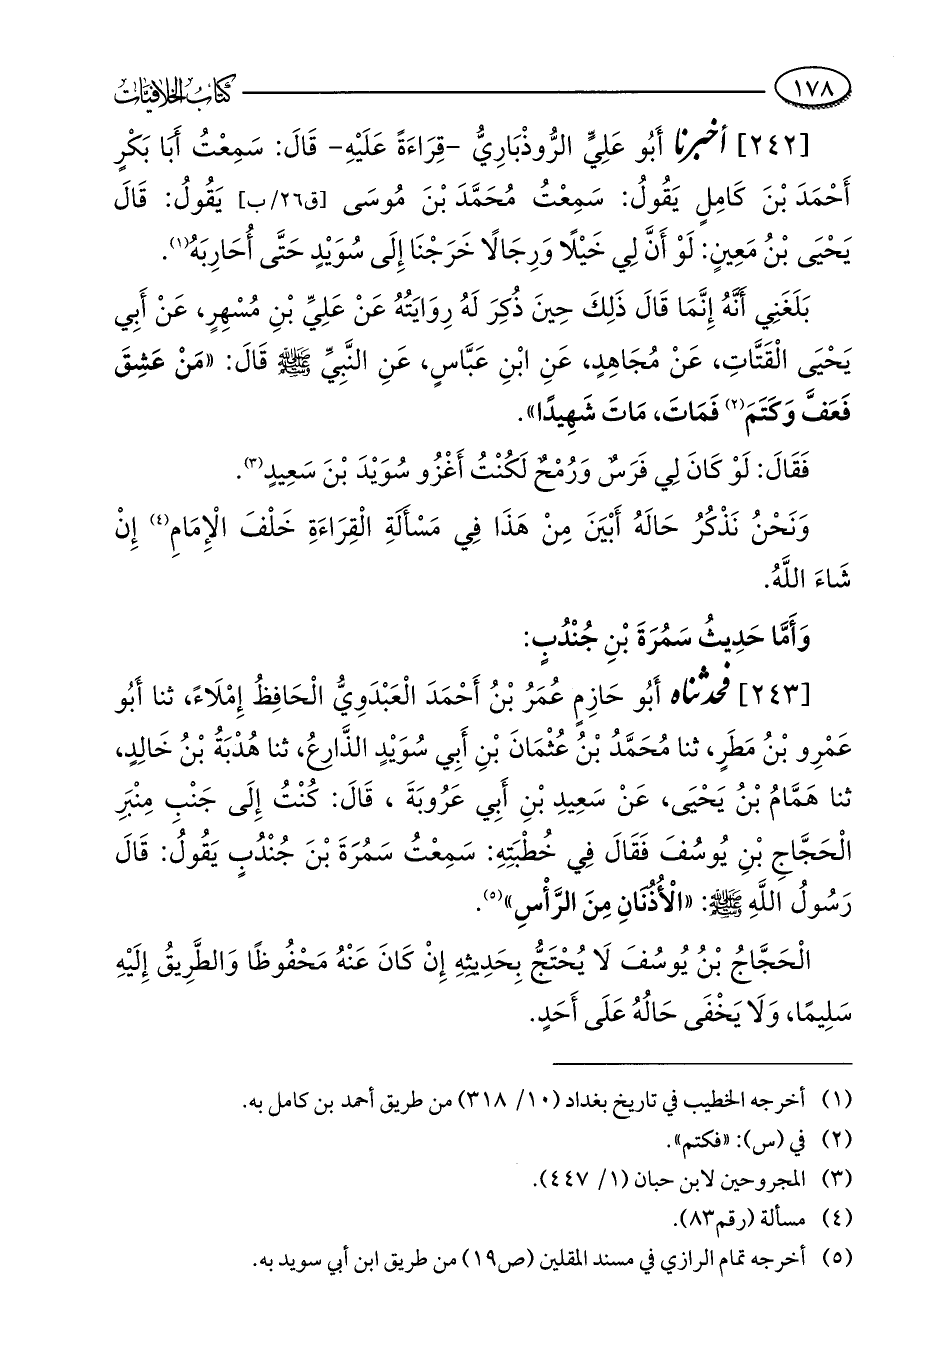 ١٧٨ كتاب الخلافيات
[٢٤٢] أخبرنا أَبُو عَلِيٍّ الرُّوذْبَارِيُّ -قِرَاءَةً عَلَيْهِ- قَالَ: سَمِعْتُ أَبَا بَكْرٍ
أَحْمَدَ بْنَ كَامِلٍ يَقُولُ: سَمِعْتُ مُحَمَّدَ بْنَ مُوسَى [ق٢٦/ب] يَقُولُ: قَالَ
يَحْيَى بْنُ مَعِينٍ: لَوْ أَنَّ لِي خَيْلًا وَرِجَالًا خَرَجْنَا إِلَى سُوَيْدٍ حَتَّى أُحَارِبَهُ(١).
بَلَغَنِي أَنَّهُ إِنَّمَا قَالَ ذَلِكَ حِينَ ذُكِرَ لَهُ رِوَايَتُهُ عَنْ عَلِيِّ بْنِ مُسْهِرٍ، عَنْ أَبِي
يَحْيَى الْقَتَّاتِ، عَنْ مُجَاهِدٍ، عَنِ ابْنِ عَبَّاسٍ، عَنِ النَّبِيِّ ﷺ قَالَ: «مَنْ عَشِقَ
فَعَفَّ وَكَتَمَ(٢) فَمَاتَ، مَاتَ شَهِيدًا».
فَقَالَ: لَوْ كَانَ لِي فَرَسٌ وَرُمْحٌ لَكُنْتُ أَغْزُو سُوَيْدَ بْنَ سَعِيدٍ(٣).
وَنَحْنُ نَذْكُرُ حَالَهُ أَبْيَنَ مِنْ هَذَا فِي مَسْأَلَةِ الْقِرَاءَةِ خَلْفَ الْإِمَامِ(٤) إِنْ
شَاءَ اللَّهُ.
وَأَمَّا حَدِيثُ سَمُرَةَ بْنِ جُنْدُبٍ:
[٢٤٣] فحدثناه أَبُو حَازِمٍ عُمَرُ بْنُ أَحْمَدَ الْعَبْدَوِيُّ الْحَافِظُ إِمْلَاءً، ثنا أَبُو
عَمْرِو بْنُ مَطَرٍ، ثنا مُحَمَّدُ بْنُ عُثْمَانَ بْنِ أَبِي سُوَيْدٍ الذَّارِعُ، ثنا هُدْبَةُ بْنُ خَالِدٍ،
ثنا هَمَّامُ بْنُ يَحْيَى، عَنْ سَعِيدِ بْنِ أَبِي عَرُوبَةَ ، قَالَ: كُنْتُ إِلَى جَنْبِ مِنْبَرِ
الْحَجَّاجِ بْنِ يُوسُفَ فَقَالَ فِي خُطْبَتِهِ: سَمِعْتُ سَمُرَةَ بْنَ جُنْدُبٍ يَقُولُ: قَالَ
رَسُولُ اللَّهِ ﷺ: «الْأُذُنَانِ مِنَ الرَّأْسِ»(٥).
الْحَجَّاجُ بْنُ يُوسُفَ لَا يُحْتَجُّ بِحَدِيثِهِ إِنْ كَانَ عَنْهُ مَحْفُوظًا وَالطَّرِيقُ إِلَيْهِ
سَلِيمًا، وَلَا يَخْفَى حَالُهُ عَلَى أَحَدٍ.
(١) أخرجه الخطيب في تاريخ بغداد (١٠/ ٣١٨) من طريق أحمد بن كامل به.
(٢) في (س): «فكتم».
(٣) المجروحين لابن حبان (١/ ٤٤٧).
(٤) مسألة (رقم٨٣).
(٥) أخرجه تمام الرازي في مسند المقلين (ص١٩) من طريق ابن أبي سويد به.